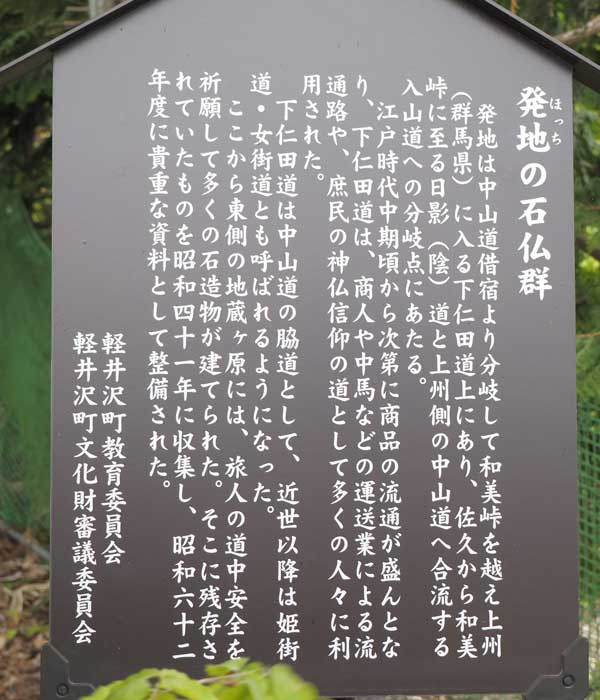 発地の石仏群
ほっち
発地は中山道借宿より分岐して和美峠を越え上州
（群馬県）に入る下仁田道上にあり、佐久から和美
峠に至る日影（陰）道と上州側の中山道へ合流する
入山道への分岐点にあたる。
江戸時代中期頃から次第に商品の流通が盛んとな
り、下仁田道は、商人や中馬などの運送業による流
通路や、庶民の神仏信仰の道として多くの人々に利
用された。
下仁田道は中山道の脇道として、近世以降は姫街
道・女街道とも呼ばれるようになった。
ここから東側の地蔵ヶ原には、旅人の道中安全を
祈願して多くの石造物が建てられた。そこに残存さ
れていたものを昭和四十一年に収集し、昭和六十二
年度に貴重な資料として整備された。
軽井沢町教育委員会
軽井沢町文化財審議委員会